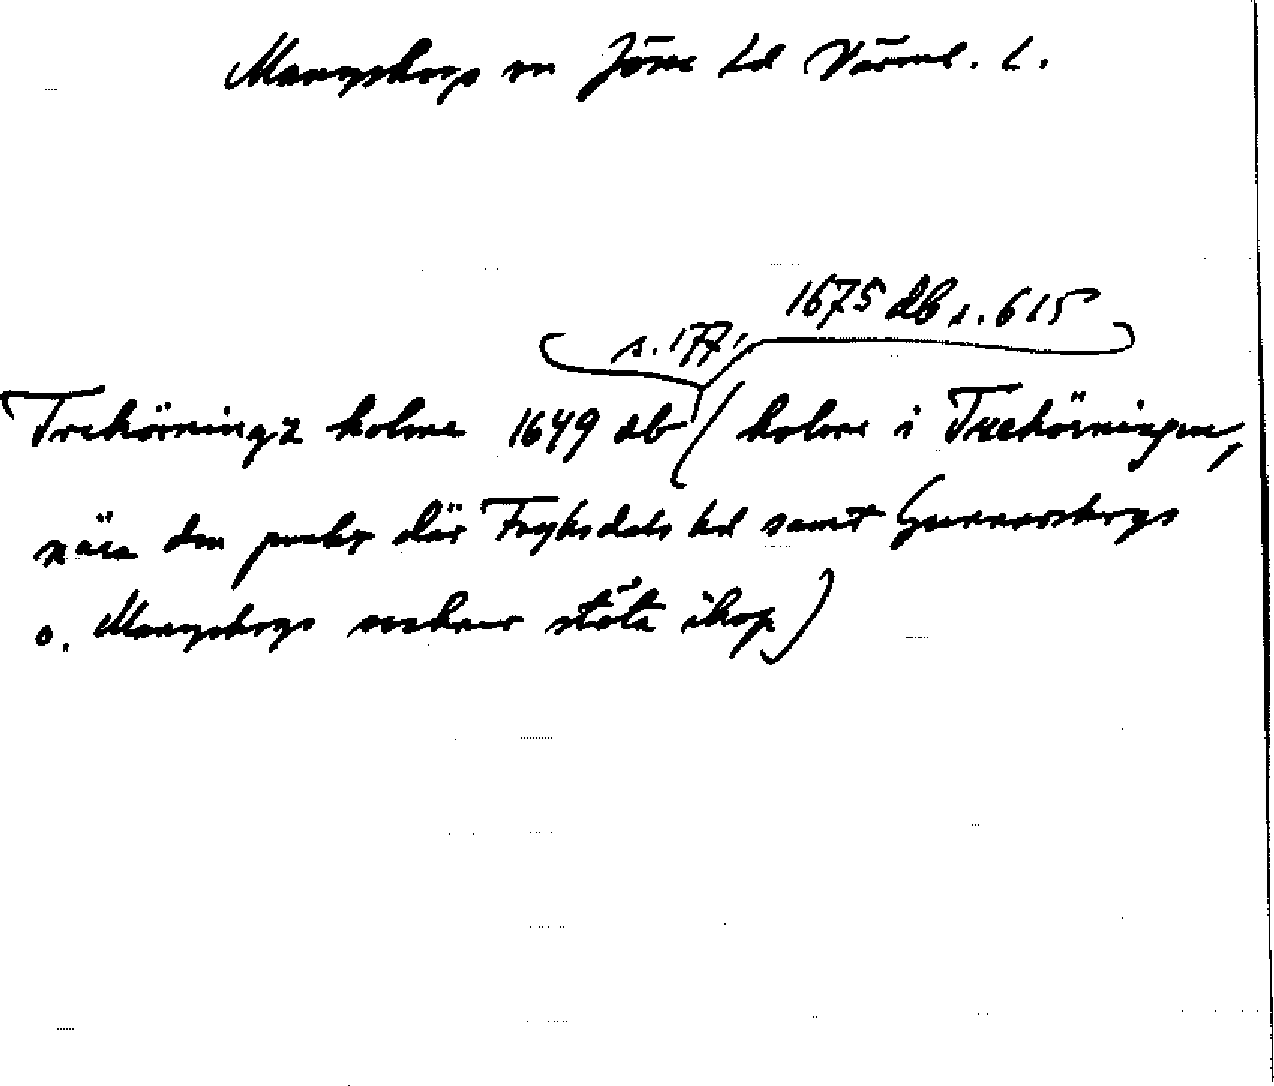 Mangskogs sn Jösse hd Värml. l.
1675 db s. 615
s. 177,
Trehörningz holme 1649 db (holme i Trehörningen,
nära den punkt där Fryksdals hd samt Gunnarskogs
o. Mangskogs socknar stöta ihop)